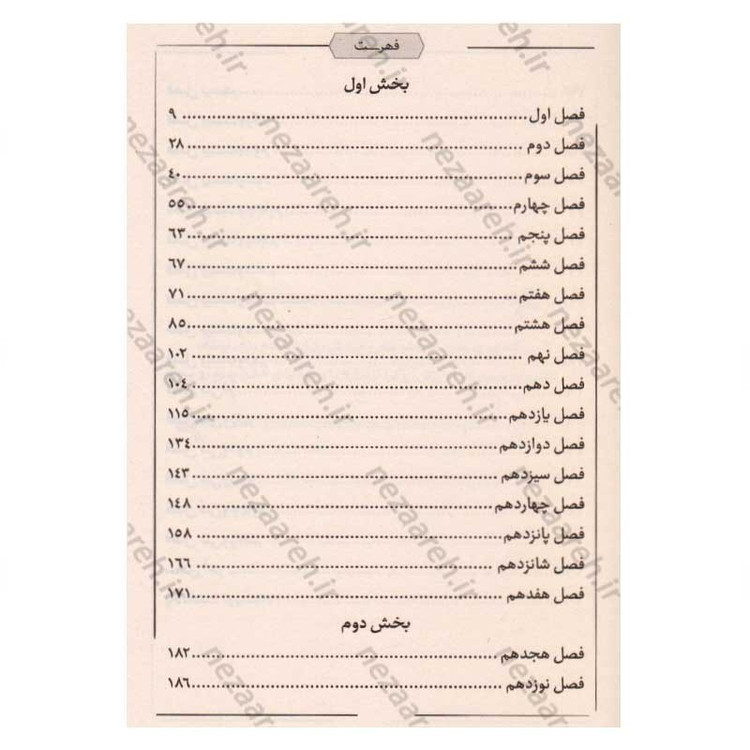 فهرست
بخش اول
فصل اول ........ ۹
فصل دوم ........ ۲۸
فصل سوم ........ ۴۰
فصل چهارم ........ ۵۵
فصل پنجم ........ ۶۳
فصل ششم ........ ۶۷
فصل هفتم ........ ۷۱
فصل هشتم ........ ۸۵
فصل نهم ........ ۱۰۲
فصل دهم ........ ۱۰۴
فصل یازدهم ........ ۱۱۵
فصل دوازدهم ........ ۱۳۴
فصل سیزدهم ........ ۱۴۳
فصل چهاردهم ........ ۱۴۸
فصل پانزدهم ........ ۱۵۸
فصل شانزدهم ........ ۱۶۶
فصل هفدهم ........ ۱۷۱
بخش دوم
فصل هجدهم ........ ۱۸۲
فصل نوزدهم ........ ۱۸۶
nezaareh.ir